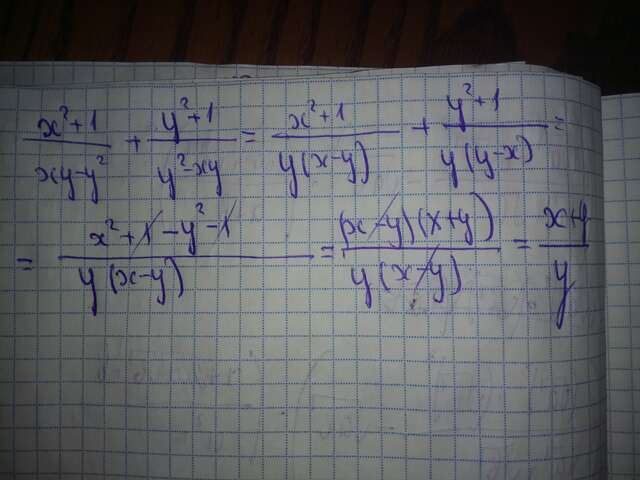 (x²+1)/(xy-y²) + (y²+1)/(y²-xy) = (x²+1)/(y(x-y)) + (y²+1)/(y(y-x)) =
= (x²+1-y²-1)/(y(x-y)) = ((x-y)(x+y))/(y(x-y)) = (x+y)/y